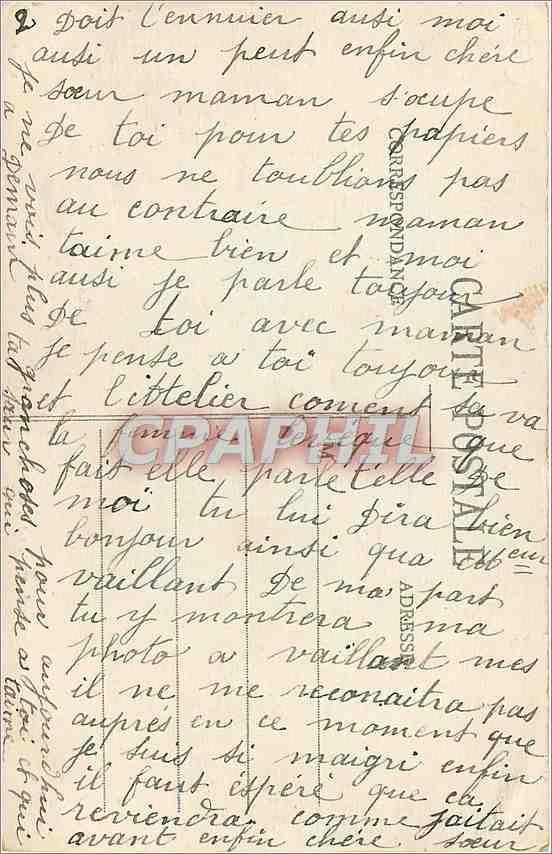 2 Doit t'ennuier ausi moi
ausi un peut enfin chére
sœur maman s'ocupe
De toi pour tes papiers
nous ne toublions pas
au contraire maman
taime bien et moi
ausi je parle toujour
De toi avec maman
je pense a toi toujour
et l'ittelier coment sa va
la que
fait elle parle telle De
moi tu lui Dira bien
bonjour ainsi qua Meur
vaillant De ma part
tu y montrera ma
photo a vaillant mes
il ne me reconaitra pas
auprés en ce moment que
je suis si maigri enfin
il faut éspéré que ca
reviendra comme jaitait
avant enfin chére sœur
je ne vois plus granchoses pour aujourd'hui
a Demain ta sœur qui pense a toi et qui
taime
CARTE POSTALE
CORRESPONDANCE
ADRESSE
M
CPAPHIL